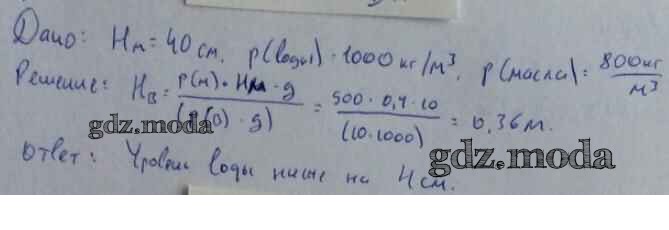 Дано: Hм = 40 см. ρ(воды) - 1000 кг/м³. ρ(масла) = 800 кг/м³
Решение: Hв = ρ(м) · Hм · g / (ρ(в) · g) = 500 · 0,4 · 10 / (10 · 1000) = 0,36 м.
gdz.moda
Ответ: Уровень воды ниже на 4 см.
gdz.moda